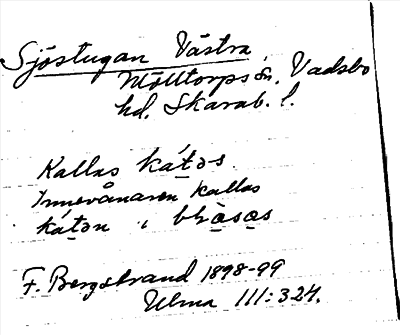 Sjöstugan Västra
Mölltorps sn. Vadsbo
hd. Skarab. l.
Kallas ka̱´təs.
Innevånaren kallas
ka̱´tən i
F. Bergstrand 1898-99
Ulma 111:324.